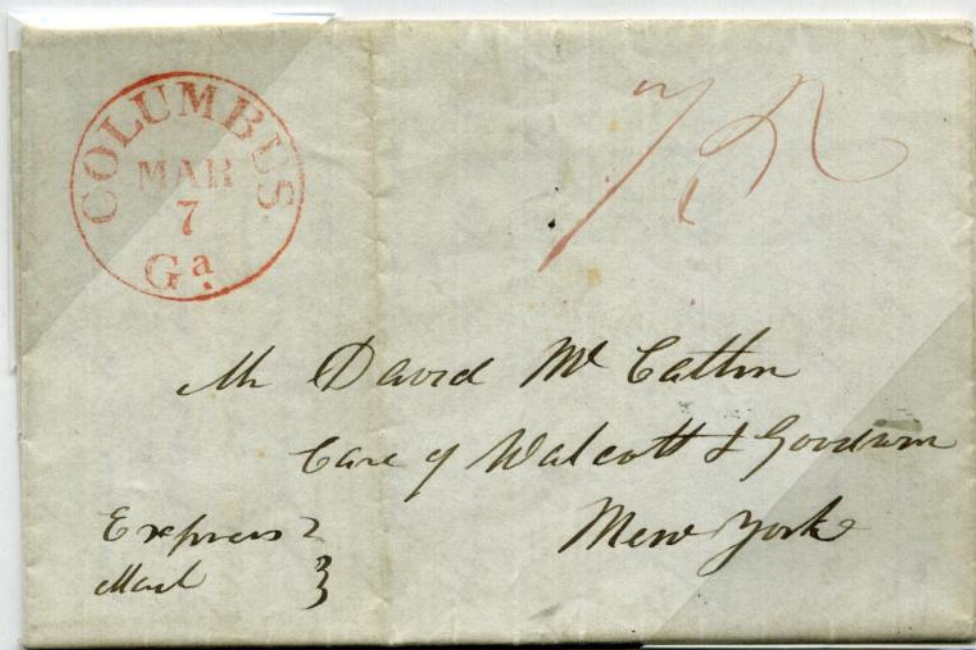 COLUMBUS
MAR
7
Ga.
75
Mr David Mc
Care of Walcott & Goodwin
New York
Express
Mail